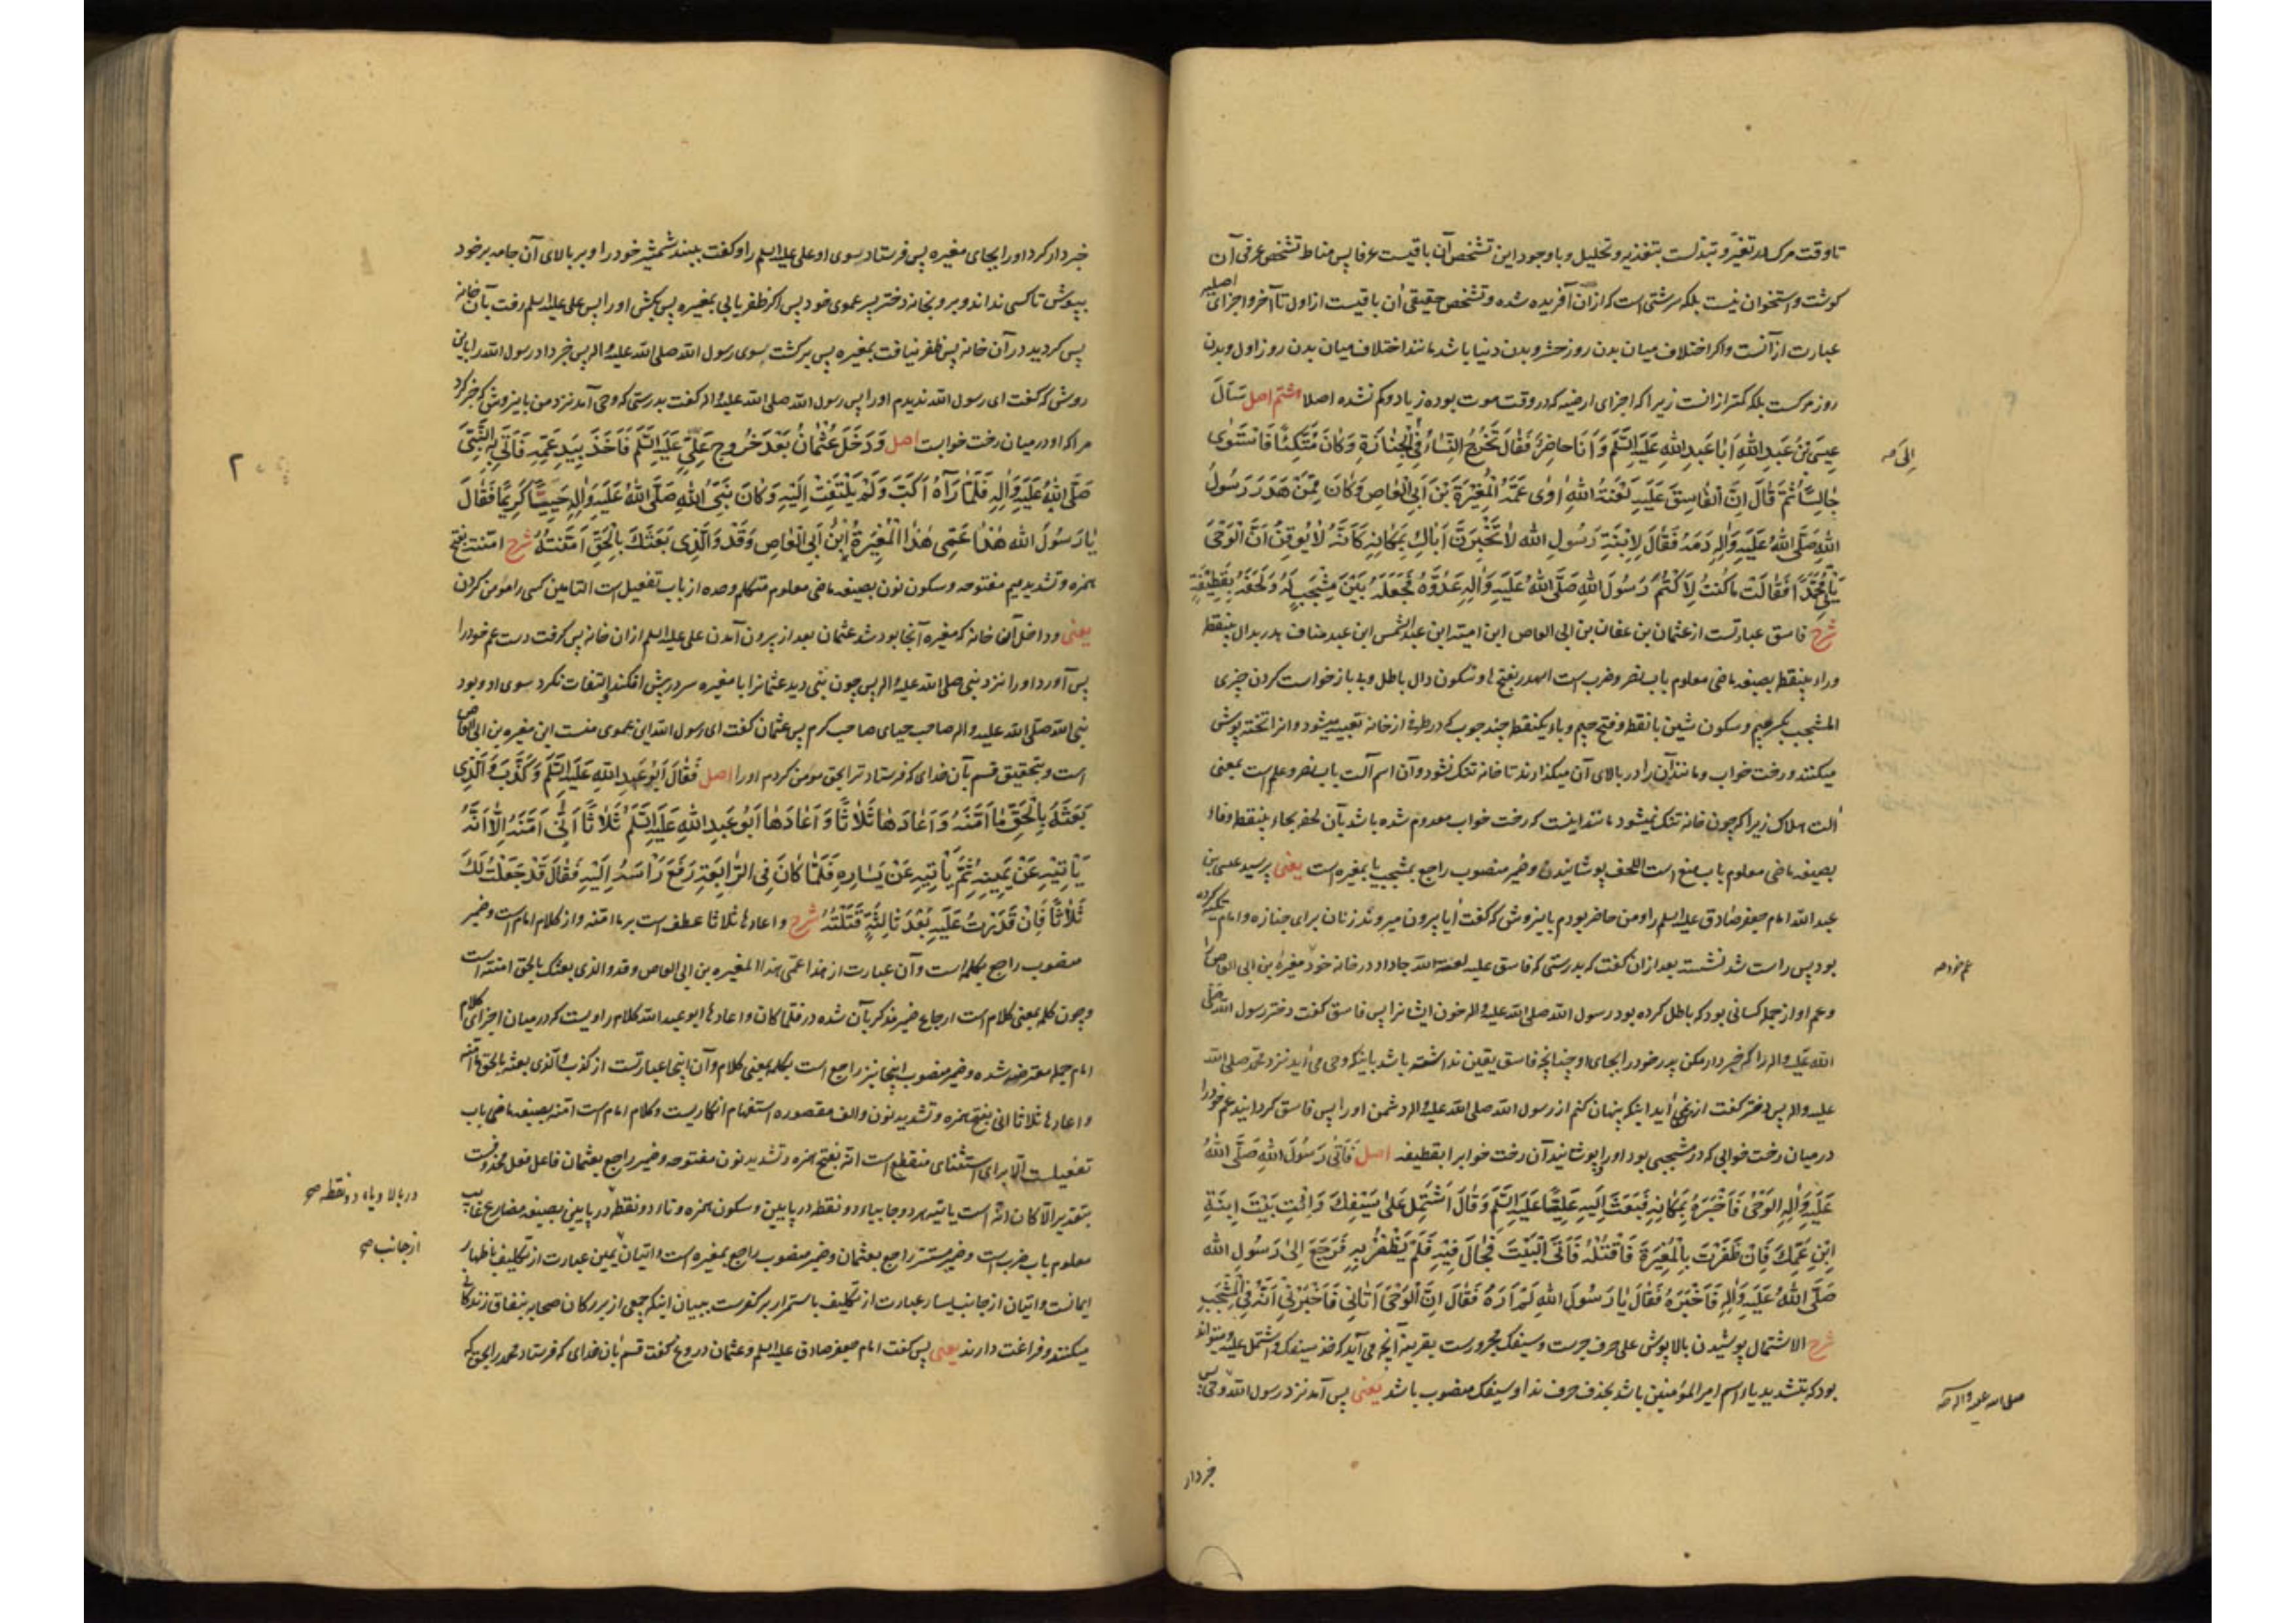 تا وقت مرک در تغیّر و تبدلست بتغذیه و تحلیل و با وجود این تشخص آن باقیست عرفا پس مناط تشخص عرفی آن
کوشت و استخوان نیست بلکه سرشتی است که ازان آفریده شده و تشخص حقیقی آن باقیست از اول تا آخر و اجزای اصلیه
عبارت از آنست و اکر اختلاف میان بدن روز حشر و بدن دنیا باشد مانند اختلاف میان بدن روز اول و بدن
روز مرکست بلکه کمتر ازانست زیرا که اجزای ارضیه که در وقت موت بوده زیاد و کم نشده اصلا هشتم اصل سَأَلَ
عِيسَى بْنُ عَبْدِ اللهِ أَبَا عَبْدِ اللهِ عَلَيْهِ السَّلَمُ وَأَنَا حَاضِرٌ فَقَالَ تَخْرُجُ النِّسَاءُ فِي الْجِنَازَةِ وَكَانَ مُتَّكِئًا فَاسْتَوَى
إِلَى صح
جَالِسًا ثُمَّ قَالَ إِنَّ الْفَاسِقَ عَلَيْهِ لَعْنَةُ اللهِ اوٰى عَمَّهُ الْمُغِيرَةَ بْنَ أَبِي الْعَاصِ وَكَانَ مِمَّنْ هَدَرَ رَسُولُ
اللهِ صَلَّى اللهُ عَلَيْهِ وَاٰلِهِ دَمَهُ فَقَالَ لِابْنَةِ رَسُولِ اللهِ لَا تُخْبِرِنَّ أَبَاكِ بِمَكَانِهِ كَأَنَّهُ لَا يُوقِنُ أَنَّ الْوَحْيَ
يَأْتِي مُحَمَّدًا فَقَالَتْ مَا كُنْتُ لِأَكْتُمَ رَسُولَ اللهِ صَلَّى اللهُ عَلَيْهِ وَاٰلِهِ عَدُوَّهُ فَجَعَلَهُ بَيْنَ مِشْجَبٍ لَهُ وَلَحَفَهُ بِقَطِيفَةٍ
شرح فاسق عبارتست از عثمان بن عفان بن ابی العاص ابن امیة ابن عبد الشمس ابن عبد مناف هدر بدال بینقطه
وراء بینقطه بصیغه ماضی معلوم باب نصر و ضرب است الهدر بفتح ها و سکون دال باطل و بی باز خواست کردن چیزی
المشجب بکسر میم و سکون شین با نقطه و فتح جیم و باء یکنقطه چند چوب که در طرفی از خانه تعبیه میشود و انرا تخته پوش
میکنند و رخت خواب و مانند آن را در بالای آن میکذارند تا خانه تنک نشود و آن اسم آلت باب نصر و علم است بمعنی
آلت هلاک زیرا که چون خانه تنک نمیشود مانند اینست که رخت خواب معدوم شده باشد بآن لحفه بحاء بینقطه وفاء
بصیغه ماضی معلوم باب منع است اللحف پوشانیدن و ضمیر منصوب راجع بمشجب یا بمغیره است یعنی پرسید عیسی بن
عبد الله امام جعفر صادق علیه السلم را و من حاضر بودم باینروش که کفت آیا بیرون میروند زنان برای جنازه و امام تکیه کرده
بود پس راست شد نشسته بعد ازان کفت که بدرستی که فاسق علیه لعنة الله جا داد در خانه خود مغیرة بن ابی العاص را
عم خود صح
و عم او از جمله کسانی بود که باطل کرده بود رسول الله صلی الله علیه واله خون ایشانرا پس فاسق کفت دختر رسول الله صلی
الله علیه واله را که خبردار مکن پدر خود را بجای او چنانچه فاسق یقین نداشته باشد باینکه وحی می آید نزد محمد صلی الله
علیه واله پس دختر کفت از من نمی آید اینکه پنهان کنم از رسول الله صلی الله علیه واله دشمن او را پس فاسق کردانید عم خود را
در میان رخت خوابی که در مشجبی بود او را و پوشانید آن رخت خواب را بقطیفه اصل فَأَتَى رَسُولَ اللهِ صَلَّى اللهُ
عَلَيْهِ وَاٰلِهِ الْوَحْيُ فَأَخْبَرَهُ بِمَكَانِهِ فَبَعَثَ إِلَيْهِ عَلِيًّا عَلَيْهِ السَّلَمُ وَقَالَ اشْتَمِلْ عَلَى سَيْفِكَ وَائْتِ بَيْتَ ابْنَةِ
ابْنِ عَمِّكَ فَإِنْ ظَفَرْتَ بِالْمُغِيرَةِ فَاقْتُلْهُ فَأَتَى الْبَيْتَ فَجَالَ فِيهِ فَلَمْ يَظْفَرْ بِهِ فَرَجَعَ إِلَى رَسُولِ اللهِ
صَلَّى اللهُ عَلَيْهِ وَاٰلِهِ فَأَخْبَرَهُ فَقَالَ يَا رَسُولَ اللهِ لَمْ أَرَهُ فَقَالَ إِنَّ الْوَحْيَ أَتَانِي فَأَخْبَرَنِي أَنَّهُ فِي الْمِشْجَبِ
شرح الاشتمال پوشیدن بالاپوش علی حرف جرست و سیفک مجرورست بقرینه آنچه می آید که خذ سیفک و اشتمل علیه و میتواند
بود که بتشدید یاء اسم امیر المؤمنین باشد بحذف حرف ندا و سیفک منصوب باشد یعنی پس آمد نزد رسول الله وحی پس
صلی الله علیه واله صح
خبردار
خبردار کرد او را بجای مغیره پس فرستاد بسوی او علی علیه السلم را و کفت ببند شمشیر خود را و بر بالای آن جامه بر خود
بپوش تا کسی نداند و برو بخانه دختر پسر عموی خود پس اکر ظفر یابی بمغیره پس بکش او را پس علی علیه السلم رفت بآن خانه
پس کردید در آن خانه پس ظفر نیافت بمغیره پس برکشت بسوی رسول الله صلی الله علیه واله پس خبر داد رسول الله را باین
روش که کفت ای رسول الله ندیدم او را پس رسول الله صلی الله علیه واله کفت بدرستی که وحی آمد نزد من باینروش که خبر کرد
مرا که او در میان رخت خوابست اصل وَدَخَلَ عُثْمَانُ بَعْدَ خُرُوجِ عَلِيٍّ عَلَيْهِ السَّلَمُ فَأَخَذَ بِيَدِ عَمِّهِ فَأَتَى بِهِ النَّبِيَّ
٢
صَلَّى اللهُ عَلَيْهِ وَاٰلِهِ فَلَمَّا رَآهُ أَكَبَّ وَلَمْ يَلْتَفِتْ إِلَيْهِ وَكَانَ نَبِيُّ اللهِ صَلَّى اللهُ عَلَيْهِ وَاٰلِهِ حَيِيًّا كَرِيمًا فَقَالَ
يَا رَسُولَ اللهِ هٰذَا عَمِّي هٰذَا الْمُغِيرَةُ ابْنُ أَبِي الْعَاصِ وَقَدْ وَالَّذِي بَعَثَكَ بِالْحَقِّ آمَنْتُهُ شرح امّنته بفتح
همزه و تشدید میم مفتوحه و سکون نون بصیغه ماضی معلوم متکلم وحده از باب تفعیل است التامین کسی را مؤمن کردن
یعنی و داخل آن خانه که مغیره آنجا بود شد عثمان بعد از بیرون آمدن علی علیه السلم ازان خانه پس کرفت دست عم خود را
پس آورد او را نزد نبی صلی الله علیه واله پس چون نبی دید عثمانرا با مغیره سر در پیش افکند و التفات نکرد بسوی او و بود
نبی الله صلی الله علیه واله صاحب حیای صاحب کرم پس عثمان کفت ای رسول الله این عموی منست این مغیره بن ابی العاص
است و بتحقیق قسم بآن خدای که فرستاد ترا بحق مؤمن کردم او را اصل فَقَالَ أَبُو عَبْدِ اللهِ عَلَيْهِ السَّلَمُ وَكَذَبَ وَالَّذِي
بَعَثَهُ بِالْحَقِّ مَا آمَنَهُ وَأَعَادَهَا ثَلَاثًا وَأَعَادَهَا أَبُو عَبْدِ اللهِ عَلَيْهِ السَّلَمُ ثَلَاثًا أَنَّى آمَنَهُ إِلَّا أَنَّهُ
يَأْتِيهِ عَنْ يَمِينِهِ ثُمَّ يَأْتِيهِ عَنْ يَسَارِهِ فَلَمَّا كَانَ فِي الرَّابِعَةِ رَفَعَ رَأْسَهُ إِلَيْهِ فَقَالَ قَدْ جَعَلْتُ لَكَ
ثَلَاثًا فَإِنْ قَدَرْتُ عَلَيْهِ بَعْدَ ثَالِثَةٍ قَتَلْتُهُ شرح و اعادها ثلاثا عطف است بر ما امّنه و از کلام امام است و ضمیر
منصوب راجع بکلمه است و آن عبارت از هذا عمّی هذا المغیره بن ابی العاص وقد والذی بعثک بالحق امّنته است
و چون کلمه بمعنی کلام است ارجاع ضمیر مذکر بآن شده در فلما کان و اعادها ابو عبد الله کلام راویست که در میان اجزای کلام
امام جمله معترضه شده و ضمیر منصوب اینجا نیز راجع است بکلمه بمعنی کلام و آن اینجا عبارتست از کذب والذی بعثه بالحق ما امّنه
و اعادها ثلاثا انی بفتح همزه و تشدید نون و الف مقصوره استفهام انکاریست و کلام امام است امّنه بصیغه ماضی باب
تفعیلست الّا برای استثنای منقطع است انّه بفتح همزه و تشدید نون مفتوحه و ضمیر راجع بعثمان فاعل فعل محذوفست
بتقدیر الّا کان انّه است یاتیه هر دو جا بیاء دو نقطه در پایین و سکون همزه و تاء دو نقطه در پایین بصیغه مضارع غایب
در بالا و یاء دو نقطه صح
معلوم باب ضرب است و ضمیر مستتر راجع بعثمان و ضمیر منصوب راجع بمغیره است و اتیان یمین عبارت از تکلیف باظهار
از جانب صح
ایمانست و اتیان از جانب یسار عبارت از تکلیف باستمرار بر کفرست ببیان اینکه جمعی از بزرکان صحابه بنفاق زندکانی
میکنند و فراغت دارند یعنی پس کفت امام جعفر صادق علیه السلم و عثمان دروغ کفت قسم بآن خدای که فرستاد محمد را بحق که